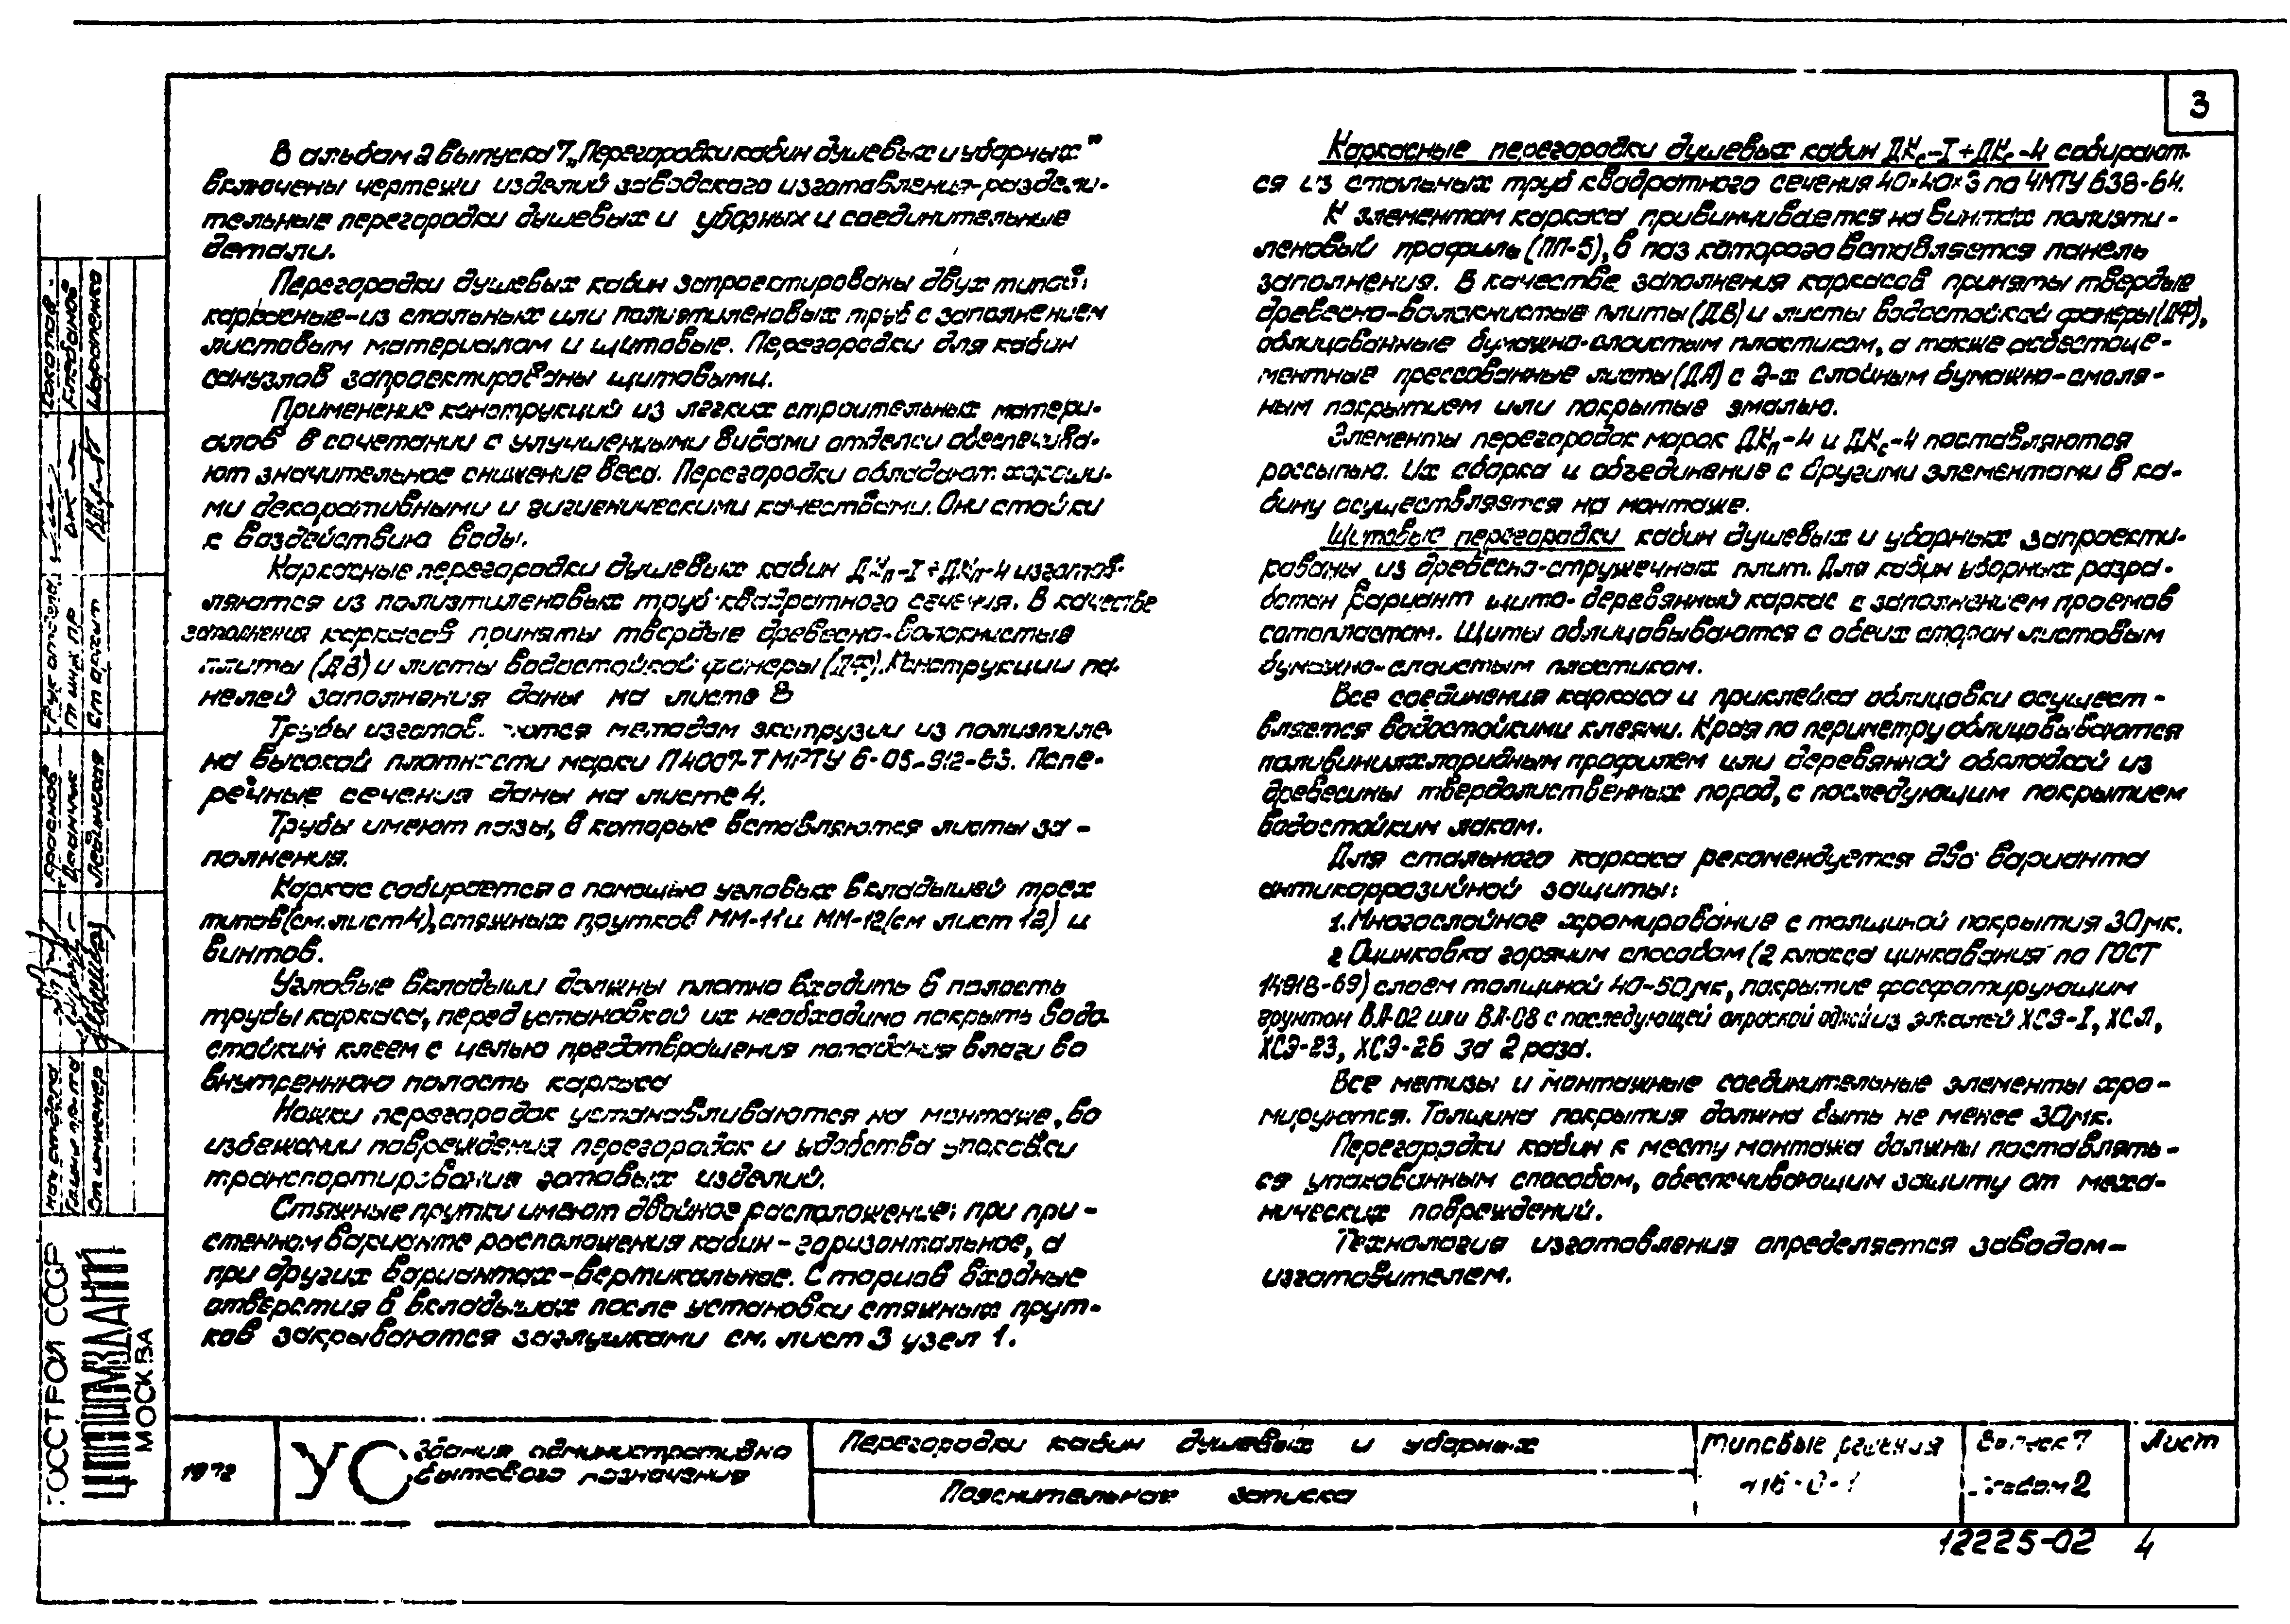 3
В альбом 2 выпуска 7 „Перегородки кабин душевых и уборных"
включены чертежи изделий заводского изготовления-раздели-
тельные перегородки душевых и уборных и соединительные
детали.
Перегородки душевых кабин запроектированы двух типов:
каркасные-из стальных или полиэтиленовых труб с заполнением
листовым материалом и щитовые. Перегородки для кабин
санузлов запроектированы щитовыми.
Применение конструкций из легких строительных матери-
алов в сочетании с улучшенными видами отделки обеспечива-
ют значительное снижение веса. Перегородки обладают хороши-
ми декоративными и гигиеническими качествами. Они стойки
к воздействию воды.
Каркасные перегородки душевых кабин ДКп-I÷ДКп-4 изготов-
ляются из полиэтиленовых труб квадратного сечения. В качестве
заполнения каркасов приняты твердые древесно-волокнистые
плиты (ДВ) и листы водостойкой фанеры (ДФ). Конструкции па-
нелей заполнения даны на листе 8
Трубы изготов. ются методом экструзии из полиэтиле-
на высокой плотности марки П4007-Т МРТУ 6-05-912-63. Попе-
речные сечения даны на листе 4.
Трубы имеют пазы, в которые вставляются листы за-
полнения.
Каркас собирается с помощью угловых вкладышей трех
типов (см. лист 4), стяжных прутков ММ-11 и ММ-12 (см лист 12) и
винтов.
Угловые вкладыши должны плотно входить в полость
трубы каркаса, перед установкой их необходимо покрыть водо-
стойким клеем с целью предотвращения попадания влаги во
внутреннюю полость каркаса
Ножки перегородок устанавливаются на монтаже, во
избежании повреждения перегородок и удобства упаковки
транспортирования готовых изделий.
Стяжные прутки имеют двойное расположение: при при-
стенном варианте расположения кабин-горизонтальное, а
при других вариантах-вертикальное. С торцов входные
отверстия в вкладышах после установки стяжных прут-
ков закрываются заглушками см. лист 3 узел 1.
Каркасные перегородки душевых кабин ДКс-I÷ДКс-4 собирают-
ся из стальных труб квадратного сечения 40×40×3 по ЧМТУ 638-64.
К элементам каркаса привинчивается на винтах полиэти-
леновый профиль (ПП-5), в паз которого вставляется панель
заполнения. В качестве заполнения каркасов приняты твердые
древесно-волокнистые плиты (ДВ) и листы водостойкой фанеры (ДФ),
облицованные бумажно-слоистым пластиком, а также асбестоце-
ментные прессованные листы (ДА) с 2-х слойным бумажно-смоля-
ным покрытием или покрытые эмалью.
Элементы перегородок марок ДКп-4 и ДКс-4 поставляются
россыпью. Их сборка и объединение с другими элементами в ка-
бину осуществляется на монтаже.
Щитовые перегородки кабин душевых и уборных запроекти-
рованы из древесно-стружечных плит. Для кабин уборных разра-
ботан вариант щита-деревянный каркас с заполнением проемов
сотопластом. Щиты облицовываются с обеих сторон листовым
бумажно-слоистым пластиком.
Все соединения каркаса и приклейка облицовки осущест-
вляется водостойкими клеями. Края по периметру облицовываются
поливинилхлоридным профилем или деревянной обкладкой из
древесины твердолиственных пород, с последующим покрытием
водостойким лаком.
Для стального каркаса рекомендуется два варианта
антикоррозийной защиты:
1. Многослойное хромирование с толщиной покрытия 30мк.
2 Оцинковка горячим способом (2 класса цинкования по ГОСТ
14918-69) слоем толщиной 40-50мк, покрытие фосфатирующим
грунтом ВЛ-02 или ВЛ-08 с последующей окраской одной из эмалей ХСЭ-I, ХСЛ,
ХСЭ-23, ХСЭ-26 за 2 раза.
Все метизы и монтажные соединительные элементы хро-
мируются. Толщина покрытия должна быть не менее 30мк.
Перегородки кабин к месту монтажа должны поставлять-
ся упакованным способом, обеспечивающим защиту от меха-
нических повреждений.
Технология изготовления определяется заводом-
изготовителем.
ГОССТРОЙ СССР
ЦНИИПРОМЗДАНИЙ
МОСКВА
Нач отдела
Ст инженер
Рук отдела
Гл инж пр
Ст архит
Левинская
1972
УС
Здания административно
бытового назначения
Перегородки кабин душевых и уборных
Пояснительная записка
Типовые решения
416-0-1
Выпуск 7
Альбом 2
Лист
12225-02 4